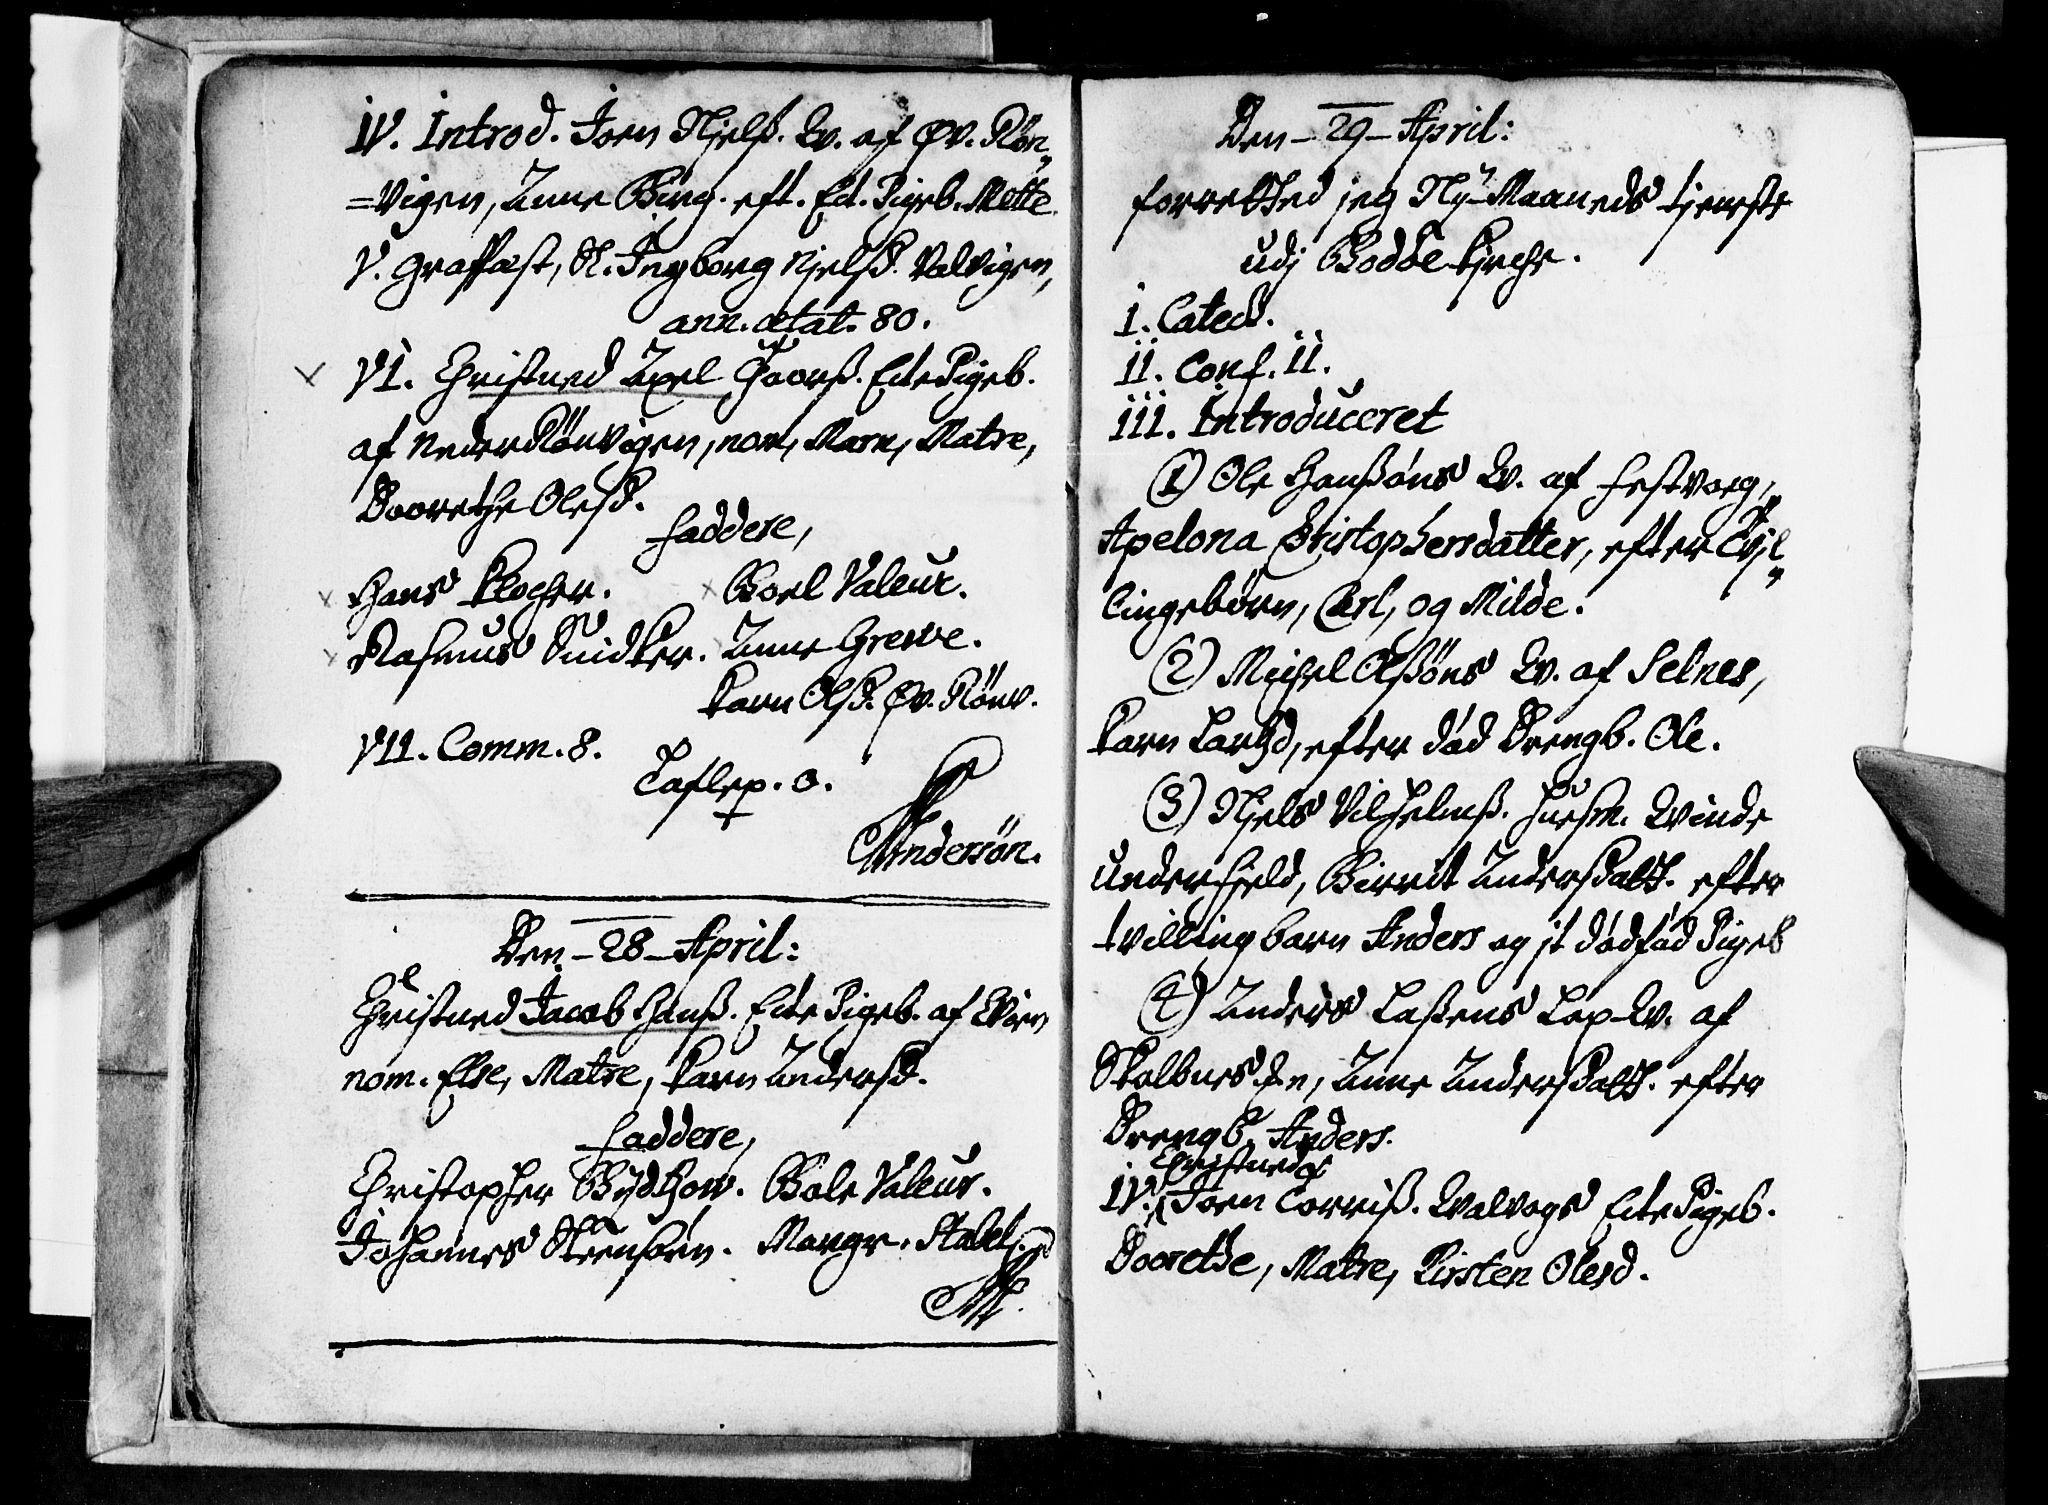 IV. Introd. Joen Njelß. Qv. af Øv. Røn„
=vigen, Anne Bing. eft. Ect. Pigeb. Mette
V. Graffæst, S. Ingborg Njelsd. Valvigen,
ann. ætat. 80.
VI. Christned Axel Thoorß. Ecte Pigeb.
af Neder Rønvigen, nom, Maren, Matre,
Doorethe Olesd.
Faddere,
Hans Plocher. Boel Valeur.
Rasmus Snidker. Anne Greve.
Karn Olsd. Øv. Rønv.
VII. Comm. 8.
Taflep. 0.
Andersøn.
Den - 28 - April:
Christned Jacob Hanß. Ecte Pigeb. af
nom. Else, Matre, Karn Andersd.
Faddere,
Christopher Bydthow. Bole Valeur.
Johannes Steensøen. Margr. Stabel
Den - 29 - April:
forretted jeg Ny-Maaneds tjenste
udj Boddøe Kjrche.
I. Catech.
II. Conf. II.
III. Introduceret
(1) Ole Hanßøns Qv. af Festvoeg,
Apelona Christophersdatter, efter Tvil„
lingebørn, Carl, og Milde.
(2) Michel Olßøns Qv. af Selnes,
Karn Larsd, efter død Drengb. Ole.
(3) Njels Vilhelmß. Huusm. Qvinde
underfjeld, Birrit Andersdatt. efter
tvillingbarn Anders og jt dødfød Pigeb
(4) Anders Laßens Lap-Qv. af
Skalbunes. Anne Andersdatt. efter
Drengb. Anders.
Christned
IV. Joen Corniß. Qvalvogs Ecte Pigeb.
Doorethe, Matre, Kirsten Olesd.